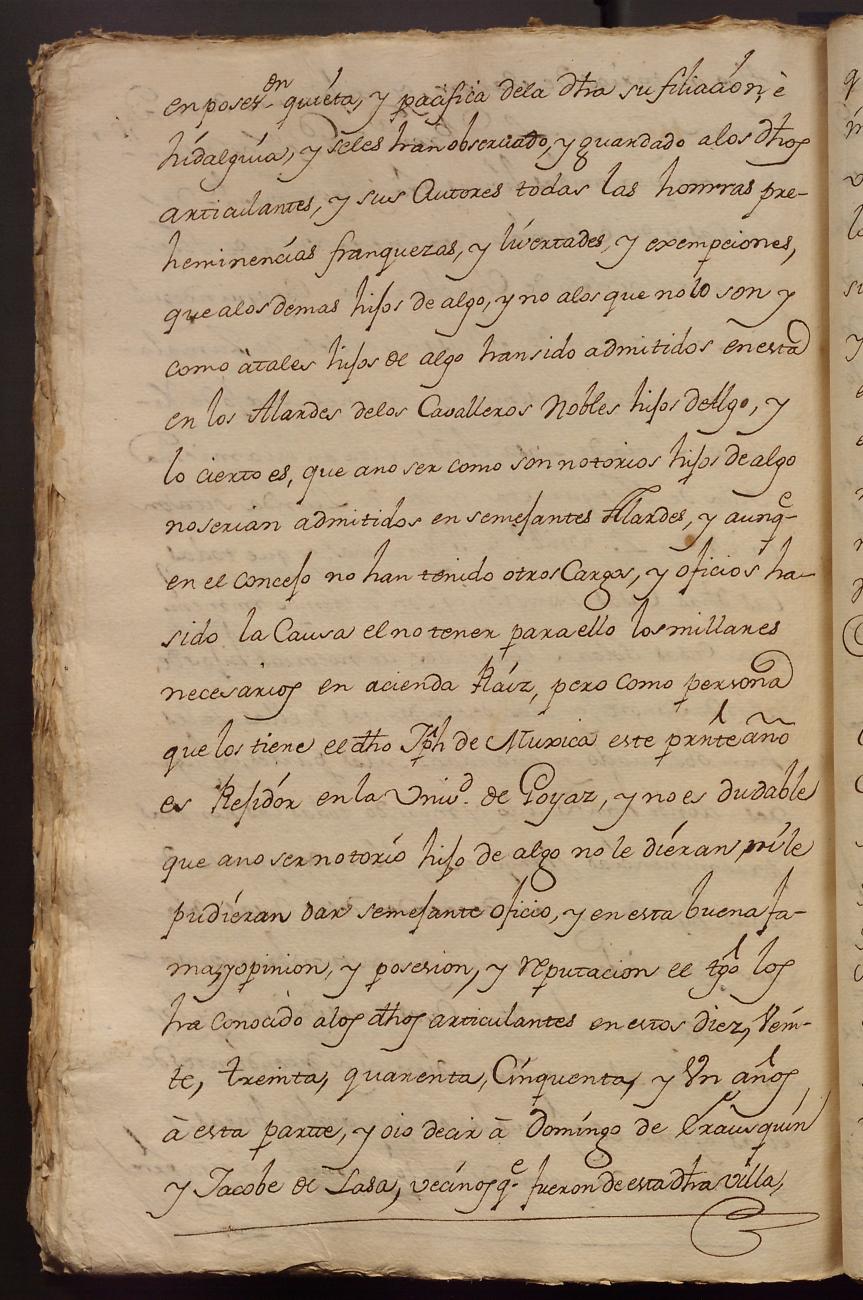 en poses.on quiéta, y pacifica dela dha su filiación, è
hidalguia, y seles han observado, y guardado alos dhos
articulantes, y sus Autores todas las honrras pre-
heminencias franquezas, y livertades, y exempciones,
que alos demas hijos de algo, y no alos que no lo son y
como à tales hijos de algo han sido admitidos en esta
en los Alardes delos Cavalleros Nobles hijos de Algo, y
lo cierto es, que ano ser como son notorios hijos de algo
no serian admitidos en semejantes Alardes, y aunqe
en el concejo no han tenido otros Cargos, y oficios ha
sido la Causa el no tener para ello los millares
necesarios en acienda Ráiz, pero como persona
que los tiene el dho Jph de Muxica este prnte año
es Rejidór en la Univd. de Goyaz, y no es dudable
que ano ser notorio hijo de algo no le diéran ni le
pudiéran dar semejante oficio, y en esta buena fa-
ma, y opinion, y posesion, y reputacion el tgo los
ha conocido alos dhos articulantes en estos diez, Vein-
te, treinta, quarenta, Cinquenta, y Un años
à esta parte, y oio decir à Domingo de Erausquin
y Jacobe de Lasa, vecinos qe. fueron de esta dha villa,